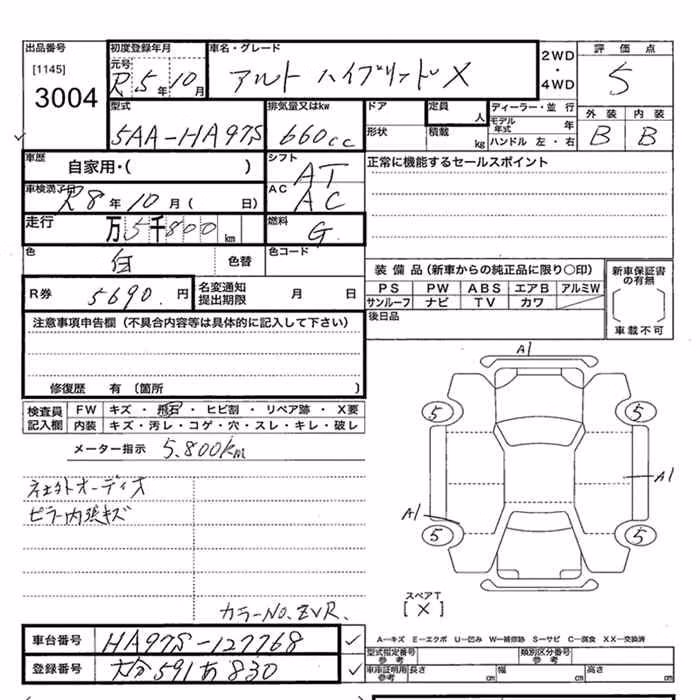 出品番号 初度登録年月 車名・グレード 2WD・4WD 評価点
[1145] 元号 R 5年 10月 アルト ハイブリッドX 5
3004
型式 排気量又はkw ドア 定員 人 ディーラー・並 行 外装 内装
5AA-HA97S 660cc 形状 積載 kg モデル年式 年 B B
ハンドル 左・右
車歴 自家用・( ) シフト AT 正常に機能するセールスポイント
車検満了日 R8年 10月 ( 日) AC AC
走行 万 5千800 km 燃料 G
色 白 色替 色コード
装備品(新車からの純正品に限り○印) 新車保証書の有無
R券 5690.円 名変通知提出期限 月 日 PS PW ABS エアB アルミW
サンルーフ ナビ TV カワ
車載不可
注意事項申告欄(不具合内容等は具体的に記入して下さい) 後日品
修復歴 有 〔箇所 〕
検査員記入欄 FW キズ・飛石・ヒビ割・リペア跡・X要
内装 キズ・汚レ・コゲ・穴・スレ・キレ・破レ
メーター指示 5.800km
オーディオ
ピラー内張キズ
カラーNo.ZVR.
A1
5 5
A1
A1
5 5
スペアT
[X]
A-キズ E-エクボ U-凹み W-補修跡 S-サビ C-腐食 XX-交換済
車台番号 HA97S-127768 型式指定番号 参考 類別区分番号 参考
登録番号 大分591あ830 車庫証明用 参考 長さ cm 幅 cm 高さ cm